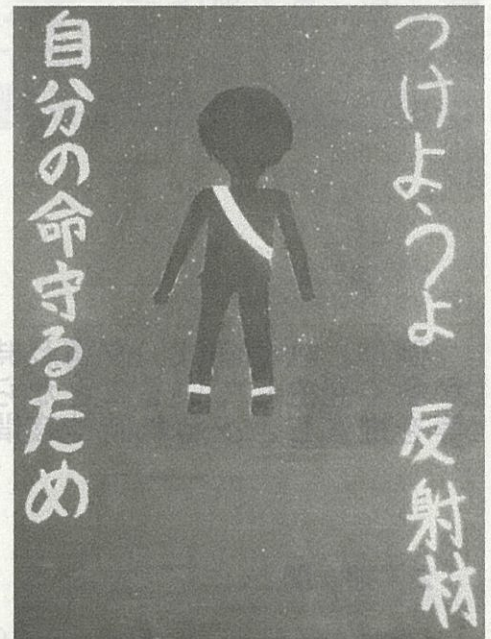 つけようよ 反射材
自分の命守るため